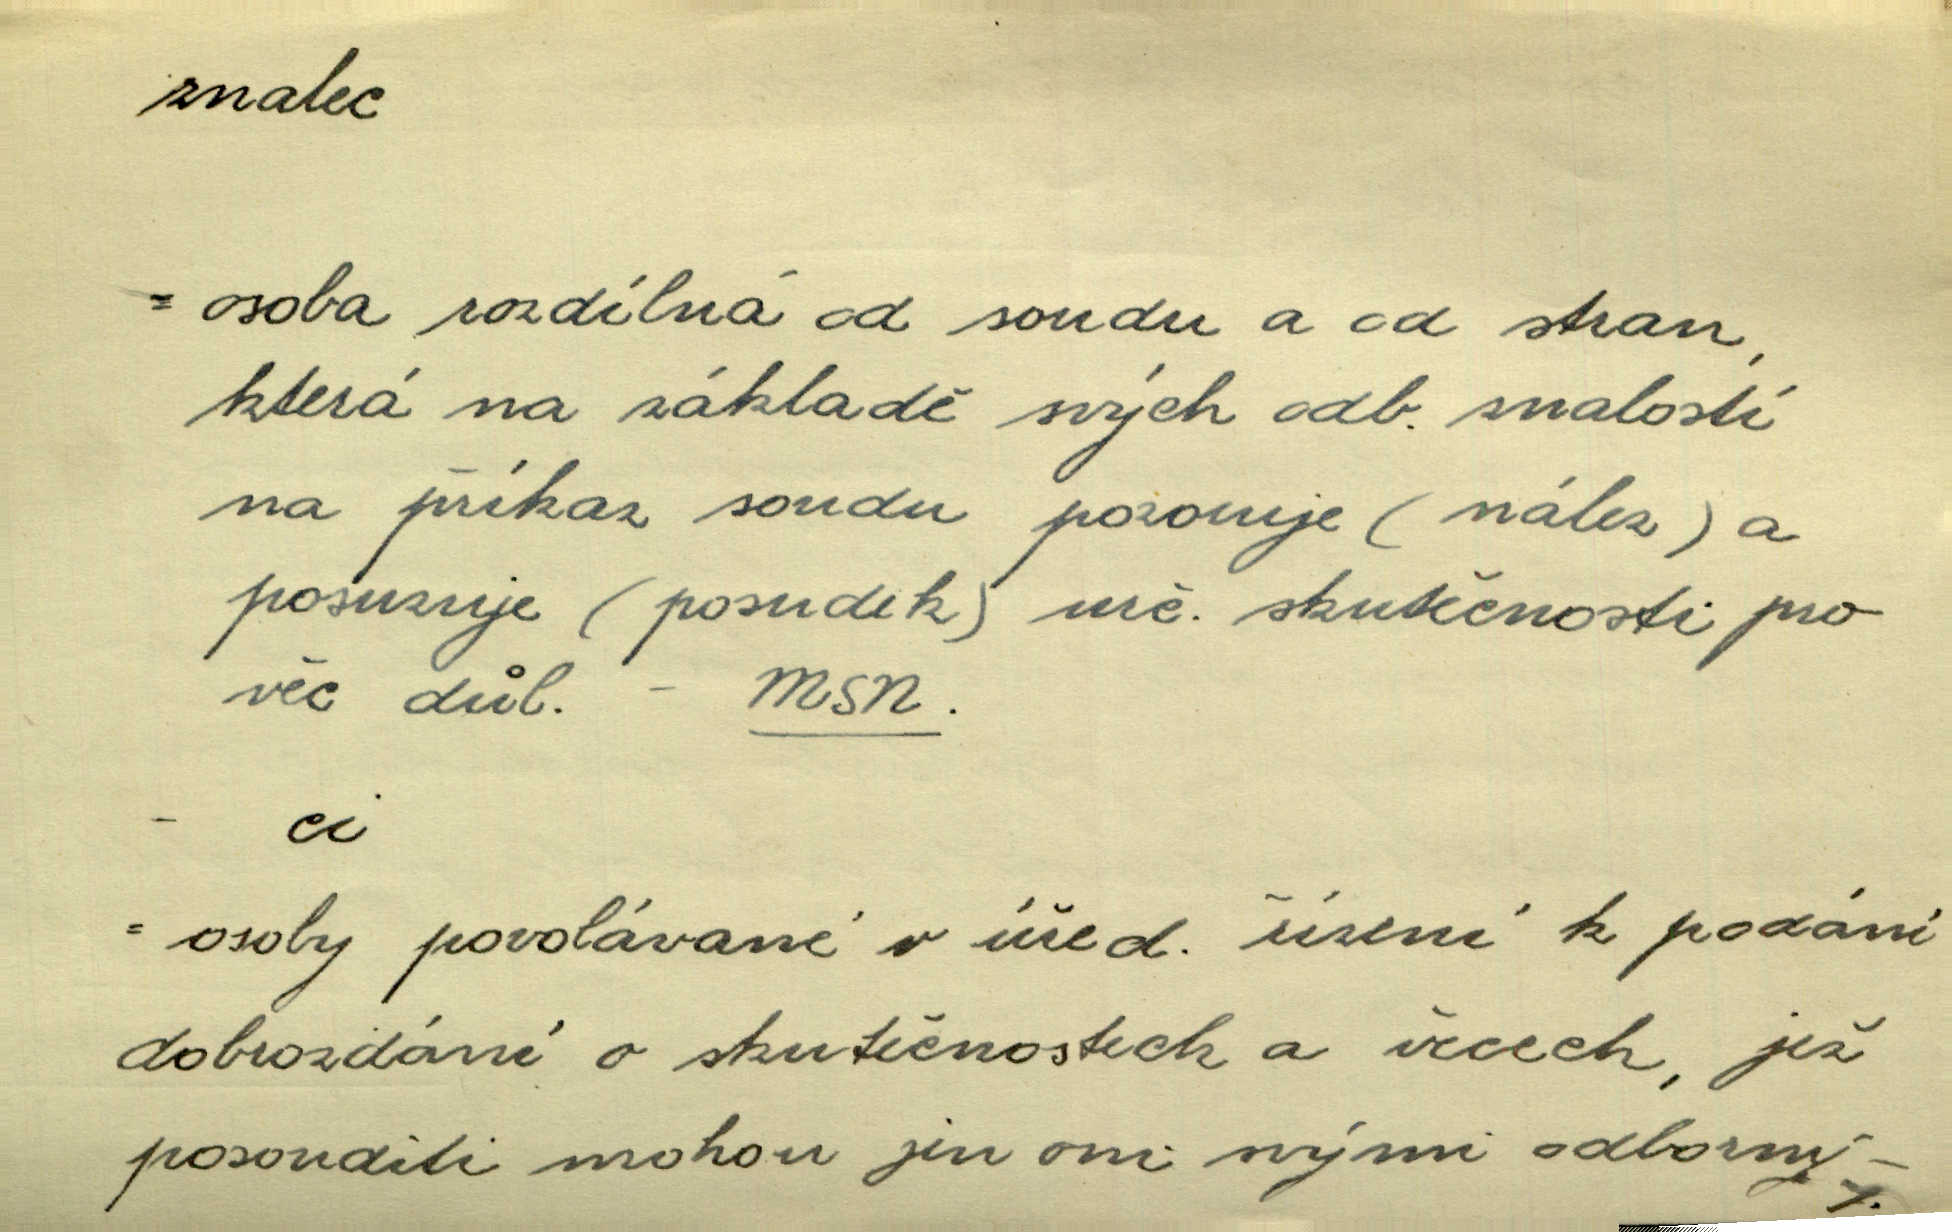 znalec
= osoba rozdílná od soudu a od stran,
která na základě svých odb. znalostí
na příkaz soudu pozoruje (nález) a
posuzuje (posudek) urč. skutečnosti pro
věc důl. - MSN.
- ci
= osoby povolávané v úřed. řízení k podání
dobrozdání o skutečnostech a věcech, jež
posouditi mohou jen oni svými odborný-